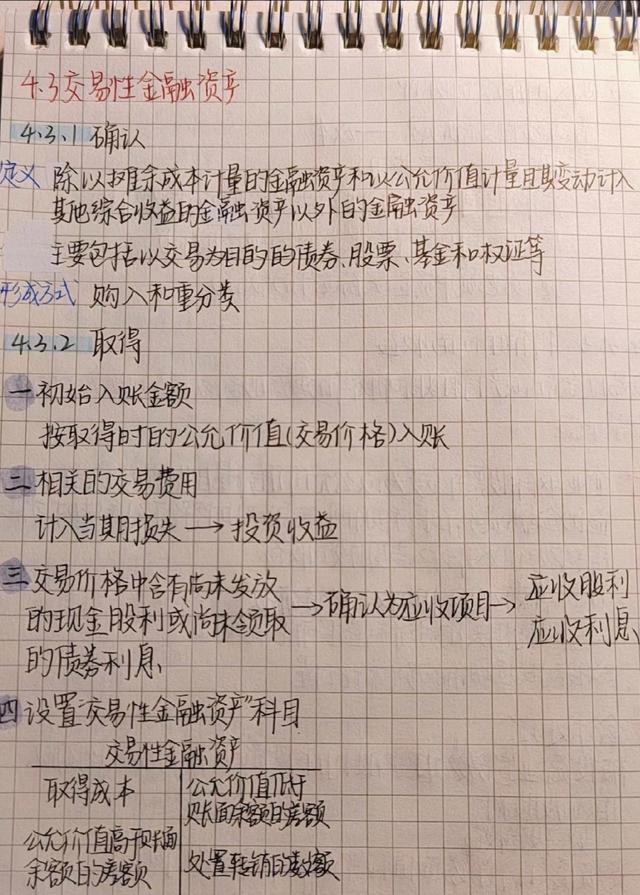 4.3交易性金融资产
4.3.1 确认
定义 除以摊余成本计量的金融资产和以公允价值计量且其变动计入
其他综合收益的金融资产以外的金融资产
主要包括以交易为目的的债券、股票、基金和权证等
形成方式 购入和重分类
4.3.2 取得
一 初始入账金额
按取得时的公允价值(交易价格)入账
二 相关的交易费用
计入当期损失→投资收益
三 交易价格中含有尚未发放
的现金股利或尚未领取
的债券利息
→确认为应收项目→
应收股利
应收利息
四 设置"交易性金融资产"科目
交易性金融资产
取得成本
公允价值高于账面
余额的差额
公允价值低于
账面余额的差额
处置转销的数额